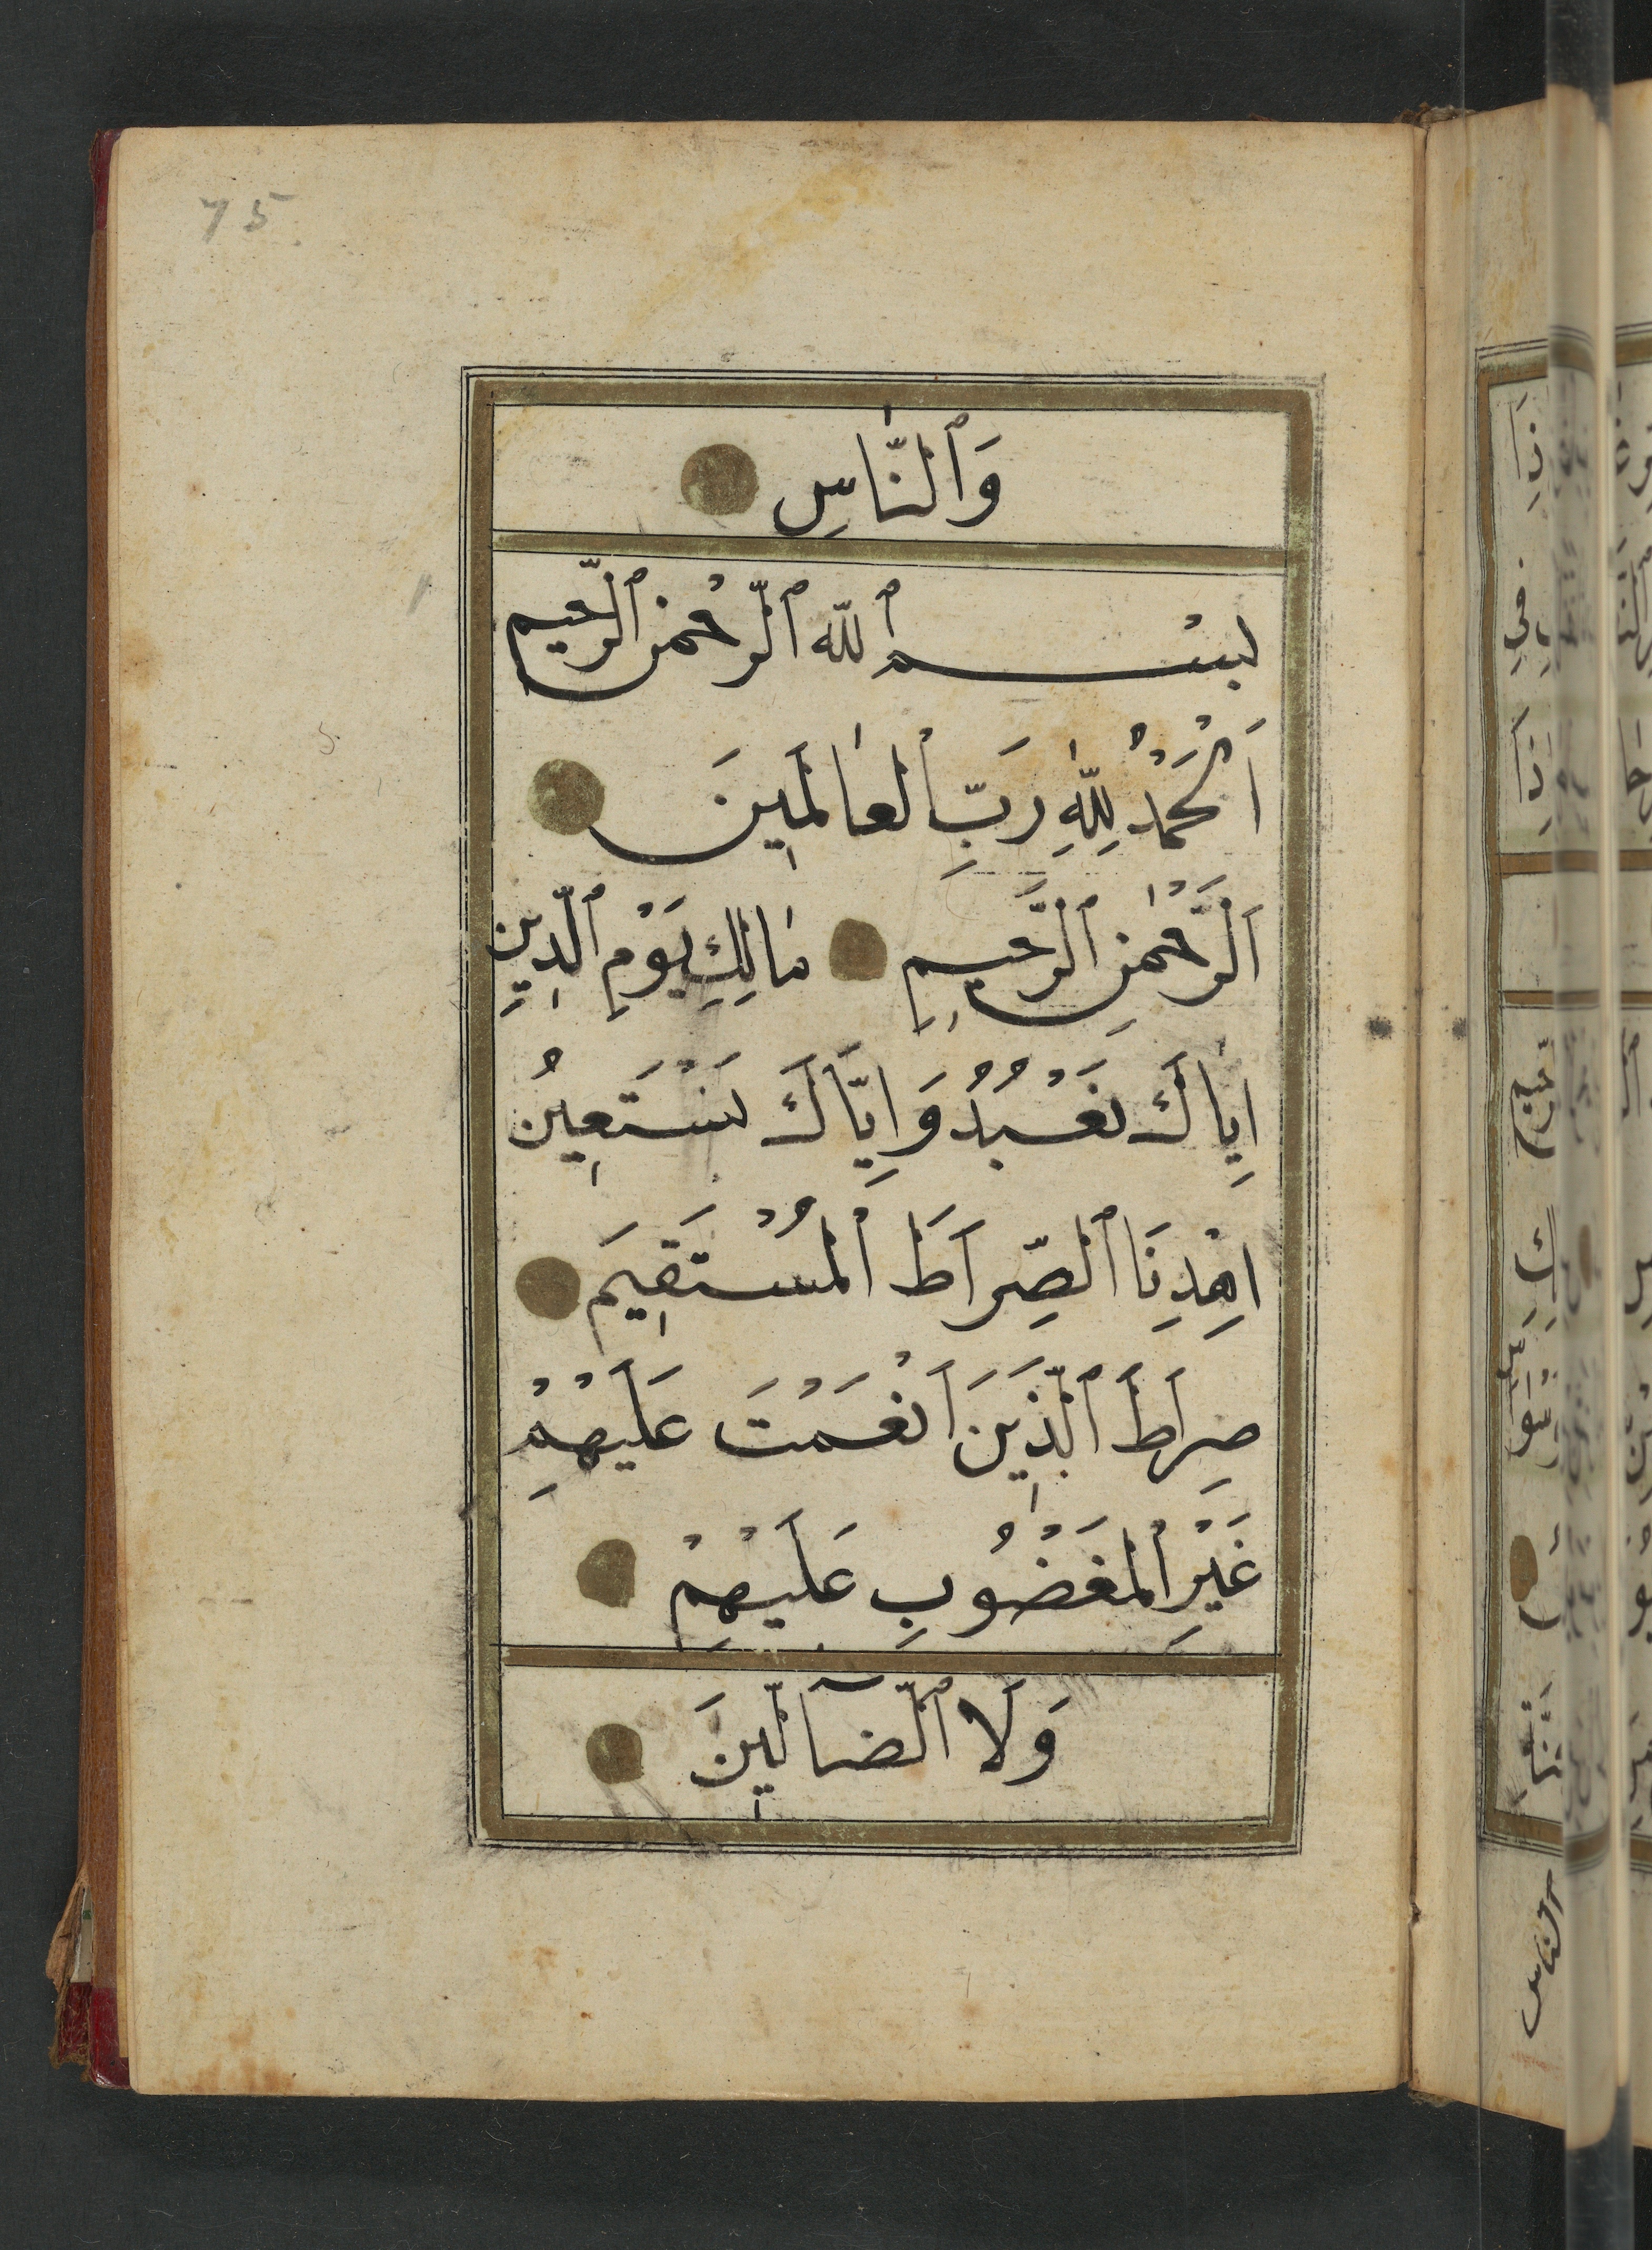 75
وَٱلنَّاسِ
بسْم ٱلله ٱلرّحْمن ٱلرّحيم
اَلْحَمْدُ لِلّٰهِ رَبِّ الْعٰالَمٖينَ
اَلرَّحْمٰنِ ٱلرَّحٖيمِ مٰالِكِ يَوْمِ ٱلدّٖينِ
اِيّٰاكَ نَعْبُدُ وَاِيَّاكَ نَسْتَعٖينُ
اِهْدِنَا ٱلصِّرَاطَ الْمُسْتَقٖيمَ
صِرَاطَ ٱلَّذٖينَ اَنْعَمْتَ عَلَيْهِمْ
غَيْرِ الْمَغْضُوبِ عَلَيْهِمْ
وَلَا ٱلضَّآلّٖينَ
والناس